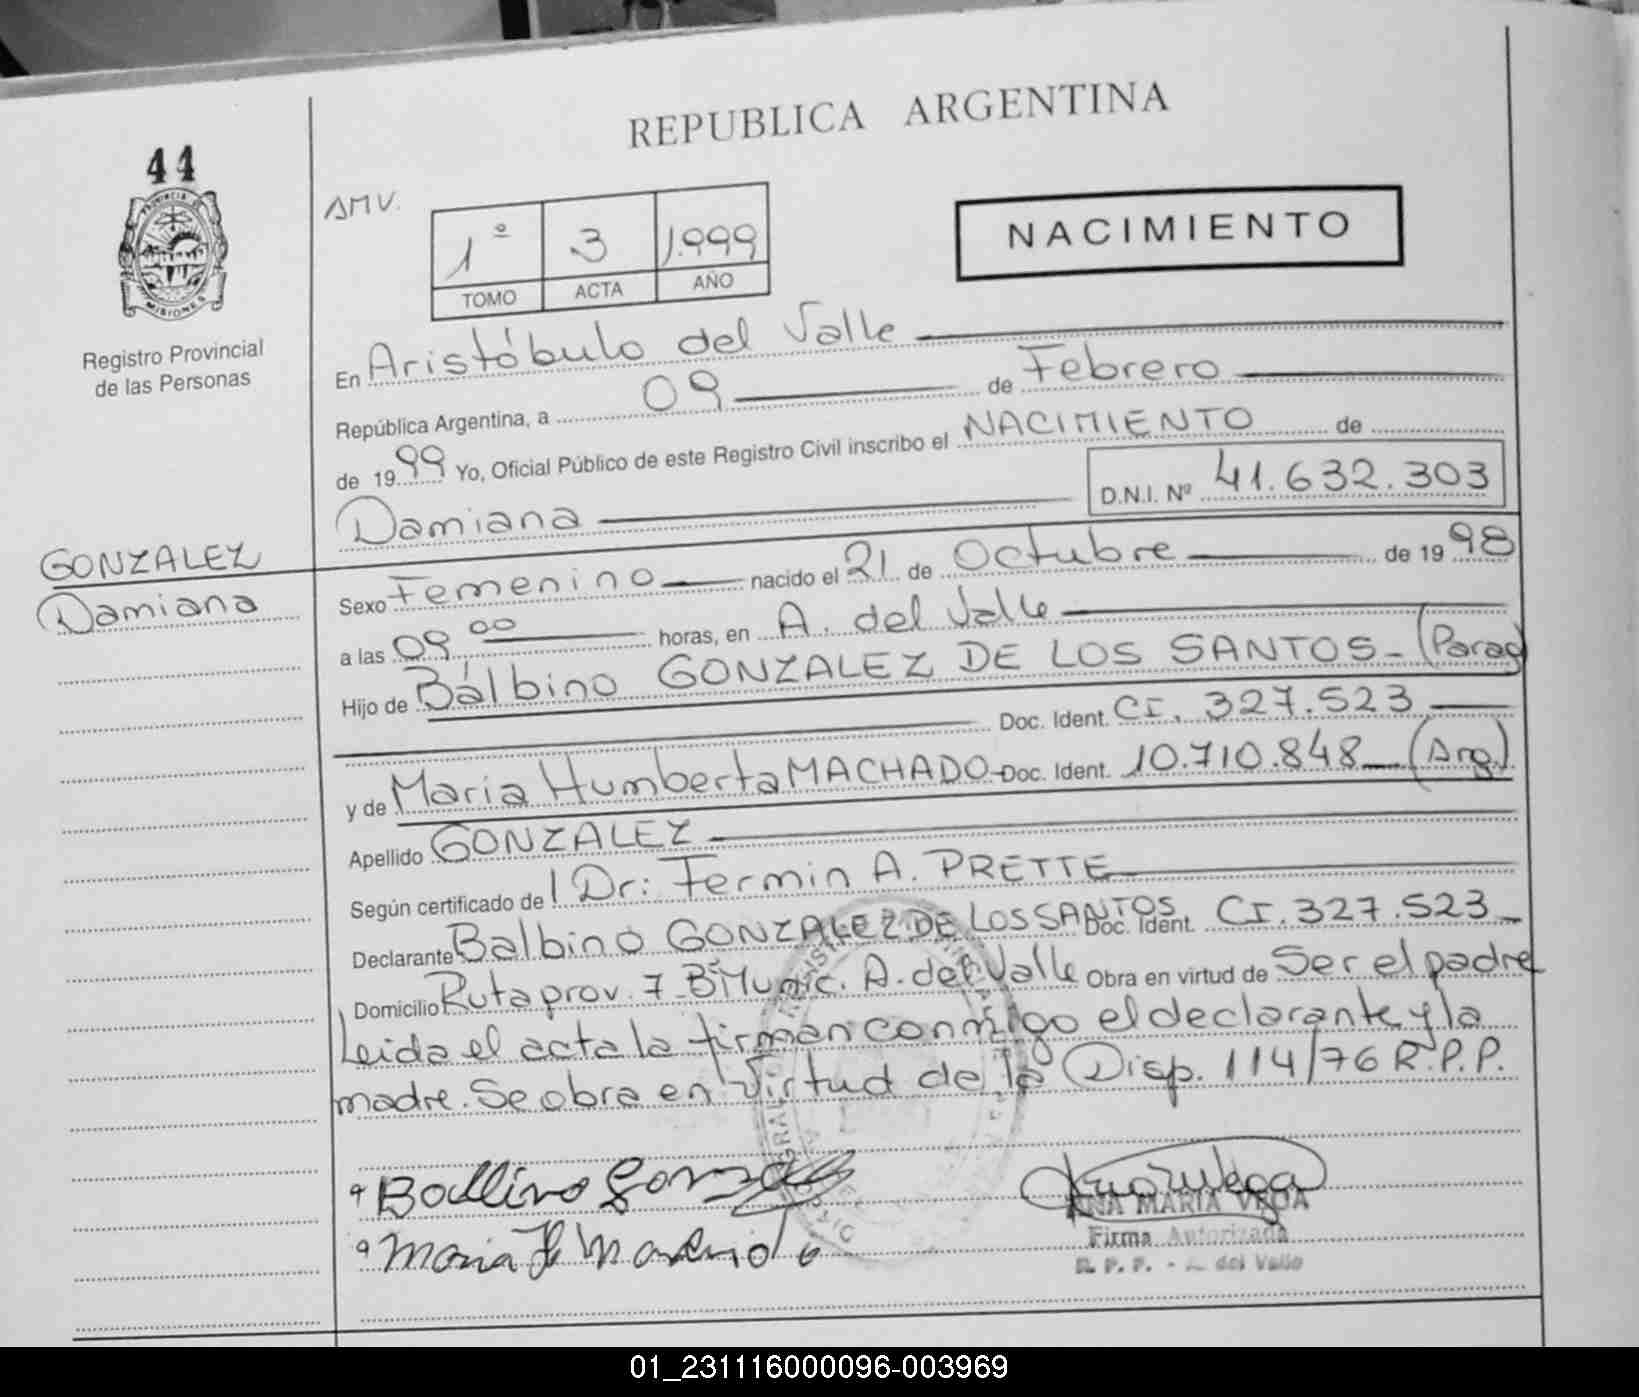 REPUBLICA ARGENTINA
44
PROVINCIA DE
MISIONES
Registro Provincial
de las Personas
AMV.
1º 3 1.999
TOMO ACTA AÑO
NACIMIENTO
En Aristóbulo del Valle
República Argentina, a 09 de Febrero
de 1999 Yo, Oficial Público de este Registro Civil inscribo el NACIMIENTO de
D.N.I. Nº 41.632.303
Damiana
GONZALEZ
Damiana
Sexo Femenino nacido el 21 de Octubre de 1998
a las 09 00 horas, en A. del Valle
Hijo de Balbino GONZALEZ DE LOS SANTOS - (Parag
Doc. Ident. CI. 327.523
y de Maria Humberta MACHADO - Doc. Ident. 10.710.848 (Arg.)
Apellido GONZALEZ
Según certificado de Dr: Fermin A. PRETTE
Declarante Balbino GONZALEZ DE LOS SANTOS Doc. Ident. CI. 327.523
Domicilio Ruta prov. 7 BºMunic. A. del Valle Obra en virtud de Ser el padre
Leida el acta la firman conmigo el declarante y la
madre. Se obra en virtud de la Disp. 114/76 R.P.P.
Balbino Gonzalez
Maria H Machado
ANA MARIA VEGA
Firma Autorizada
R. P. P. - A. del Valle
01_231116000096-003969